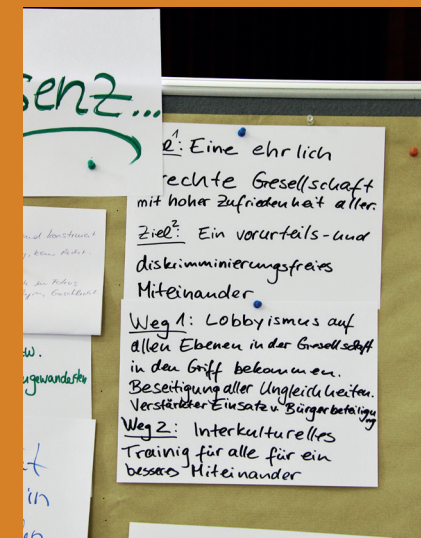 senz...
l¹: Eine ehrlich
rechte Gesellschaft
mit hoher Zufriedenheit aller.
Ziel²: Ein vorurteils-und
diskrimminierungsfreies
Miteinander
Weg 1: Lobbyismus auf
allen Ebenen in der Gesellschaft
in den Griff bekommen.
Beseitigung aller Ungleichheiten.
Verstärkter Einsatz v. Bürgerbeteiligung
Weg 2: Interkulturelles
Trainig für alle für ein
besseres Miteinander
w.
ugewanderten
in